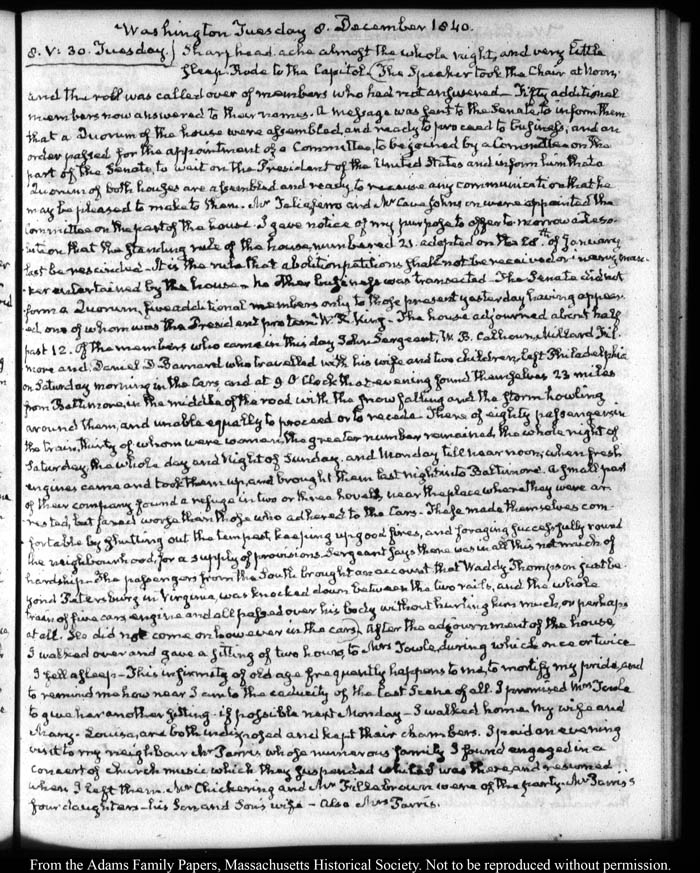 Washington Tuesday 8. December 1840.
8. V: 30. Tuesday. Sharp head ache almost the whole night, and very little
sleep. Rode to the Capitol. The Speaker took the Chair at Noon,
and the roll was called over of members who had not answered — Fifty additional
members now answered to their names. A message was sent to the Senate, to inform them
that a Quorum of the house were assembled, and ready to proceed to business, and an
order passed for the appointment of a Committee, to be joined by a Committee on the
part of the Senate, to wait on the President of the United States and inform him that a
Quorum of both houses are assembled and ready to receive any communication that he
may be pleased to make to them. Mr Taliaferro and Mr Cave Johnson were appointed the
Committee on the part of the house. I gave notice of my purpose to offer to morrow a Reso-
lution that the standing rule of the house, numbered 21. adopted on the 28th. of January
last be rescinded — It is the rule that abolition petitions shall not be received or in any man-
ner entertained by the house — no other business was transacted — The Senate did not
form a Quorum, five additional members only to those present yesterday having appear-
ed, one of whom was the President pro tem. W. R. King — The house adjourned about half
past 12. Of the members who came in this day John Sergeant, W. B. Calhoun, Millard Fil-
more and Daniel D Barnard who travelled with his wife and two children, left Philadelphia
on Saturday morning in the Cars, and at 9 O'Clock that evening found themselves 23 miles
from Baltimore, in the middle of the road with the snow falling and the storm howling
around them, and unable equally to proceed or to recede. There of eighty passengers in
the train, thirty of whom were women, the greater number remained the whole night of
Saturday, the whole day and Night of Sunday, and Monday till near noon, when fresh
engines came and took them up, and brought them last night into Baltimore. A small part
of their company found a refuge in two or three hovels, near the place where they were ar-
rested, but fared worse than those who adhered to the Cars — These made themselves com-
fortable by shutting out the tempest keeping up good fires, and foraging successfully round
the neighbourhood, for a supply of provisions. Sergeant says there was in all this not much of
hardship — The passengers from the South brought an account that Waddy Thompson just be-
yond Petersburg in Virginia, was knocked down between the two rails, and the whole
train of five cars engine and all passed over his body without hurting him much, or perhaps
at all. He did not come on however in the cars. After the adjournment of the house,
I walked over and gave a sitting of two hours, to Mrs Towle, during which once or twice
I fell asleep — This infirmity of old age frequently happens to me, to mortify my pride, and
to remind me how near I am to the caducity of the last Scene of all. I promised Mrs Towle
to give her another sitting — if possible next Monday — I walked home. My wife and
Mary-Louisa, are both indisposed and kept their chambers. I paid an evening
visit to my neighbour Mr Farris whose numerous family I found engaged in a
concert of church music which they suspended while I was there, and resumed
when I left them. Mr Chickering and Mr Fillebrown were of the party. Mr Farris's
four daughters — his Son and Son's wife — Also Mrs Farris.
From the Adams Family Papers, Massachusetts Historical Society. Not to be reproduced without permission.